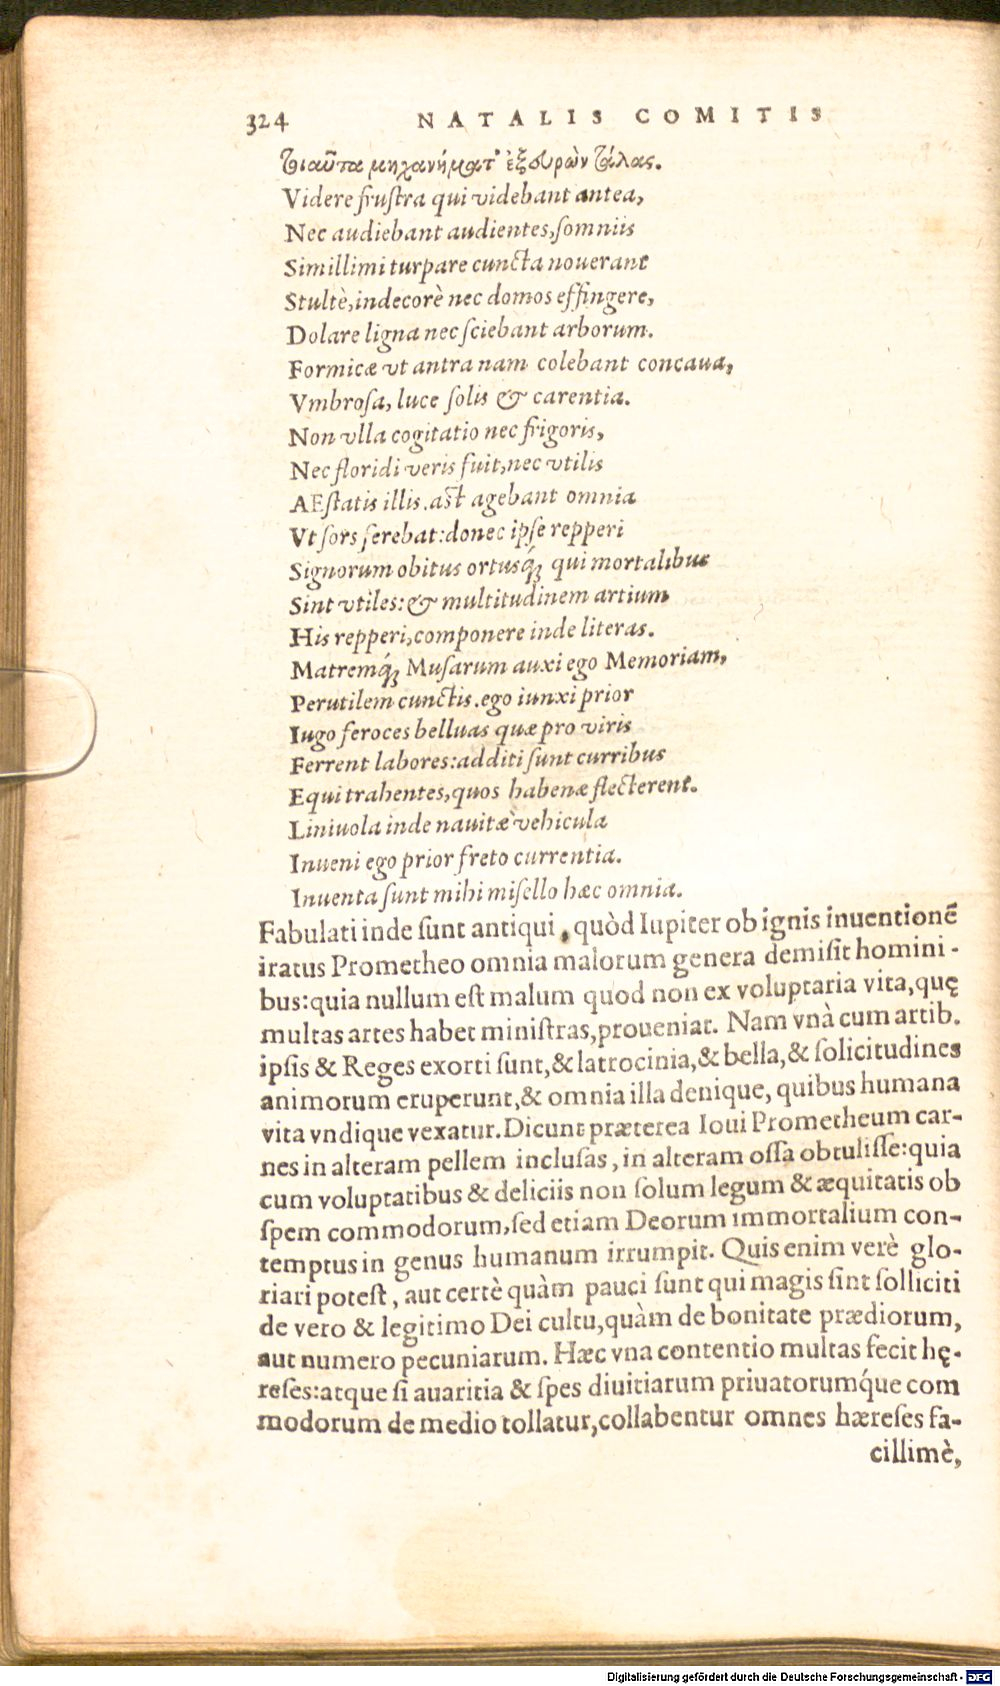 324 NATALIS COMITIS
τοιαῦτα μηχανήματ' ἐξευρὼν τάλας.
Videre frustra qui videbant antea,
Nec audiebant audientes, somniis
Simillimi turpare cuncta nouerant
Stultè, indecorè nec domos effingere,
Dolare ligna nec sciebant arborum.
Formicæ vt antra nam colebant concaua,
Vmbrosa, luce solis & carentia.
Non vlla cogitatio nec frigoris,
Nec floridi veris fuit, nec vtilis
AEstatis illis. ast agebant omnia
Vt sors ferebat: donec ipse repperi
Signorum obitus ortusq́; qui mortalibus
Sint vtiles: & multitudinem artium
His repperi, componere inde literas.
Matremq́; Musarum auxi ego Memoriam,
Perutilem cunctis. ego iunxi prior
Iugo feroces belluas quæ pro viris
Ferrent labores: additi sunt curribus
Equi trahentes, quos habenæ flecterent.
Liniuola inde nauitæ vehicula
Inueni ego prior freto currentia.
Inuenta sunt mihi misello hæc omnia.
Fabulati inde sunt antiqui, quòd Iupiter ob ignis inuentionē
iratus Prometheo omnia malorum genera demisit homini-
bus: quia nullum est malum quod non ex voluptaria vita, quę
multas artes habet ministras, proueniat. Nam vnà cum artib.
ipsis & Reges exorti sunt, & latrocinia, & bella, & solicitudines
animorum eruperunt, & omnia illa denique, quibus humana
vita vndique vexatur. Dicunt præterea Ioui Prometheum car-
nes in alteram pellem inclusas, in alteram ossa obtulisse: quia
cum voluptatibus & deliciis non solum legum & æquitatis ob
spem commodorum, sed etiam Deorum immortalium con-
temptus in genus humanum irrumpit. Quis enim verè glo-
riari potest, aut certè quàm pauci sunt qui magis sint solliciti
de vero & legitimo Dei cultu, quàm de bonitate prædiorum,
aut numero pecuniarum. Hæc vna contentio multas fecit hę-
reses: atque si auaritia & spes diuitiarum priuatorumq́ue com
modorum de medio tollatur, collabentur omnes hæreses fa-
cillimè,
Digitalisierung gefördert durch die Deutsche Forschungsgemeinschaft - DFG